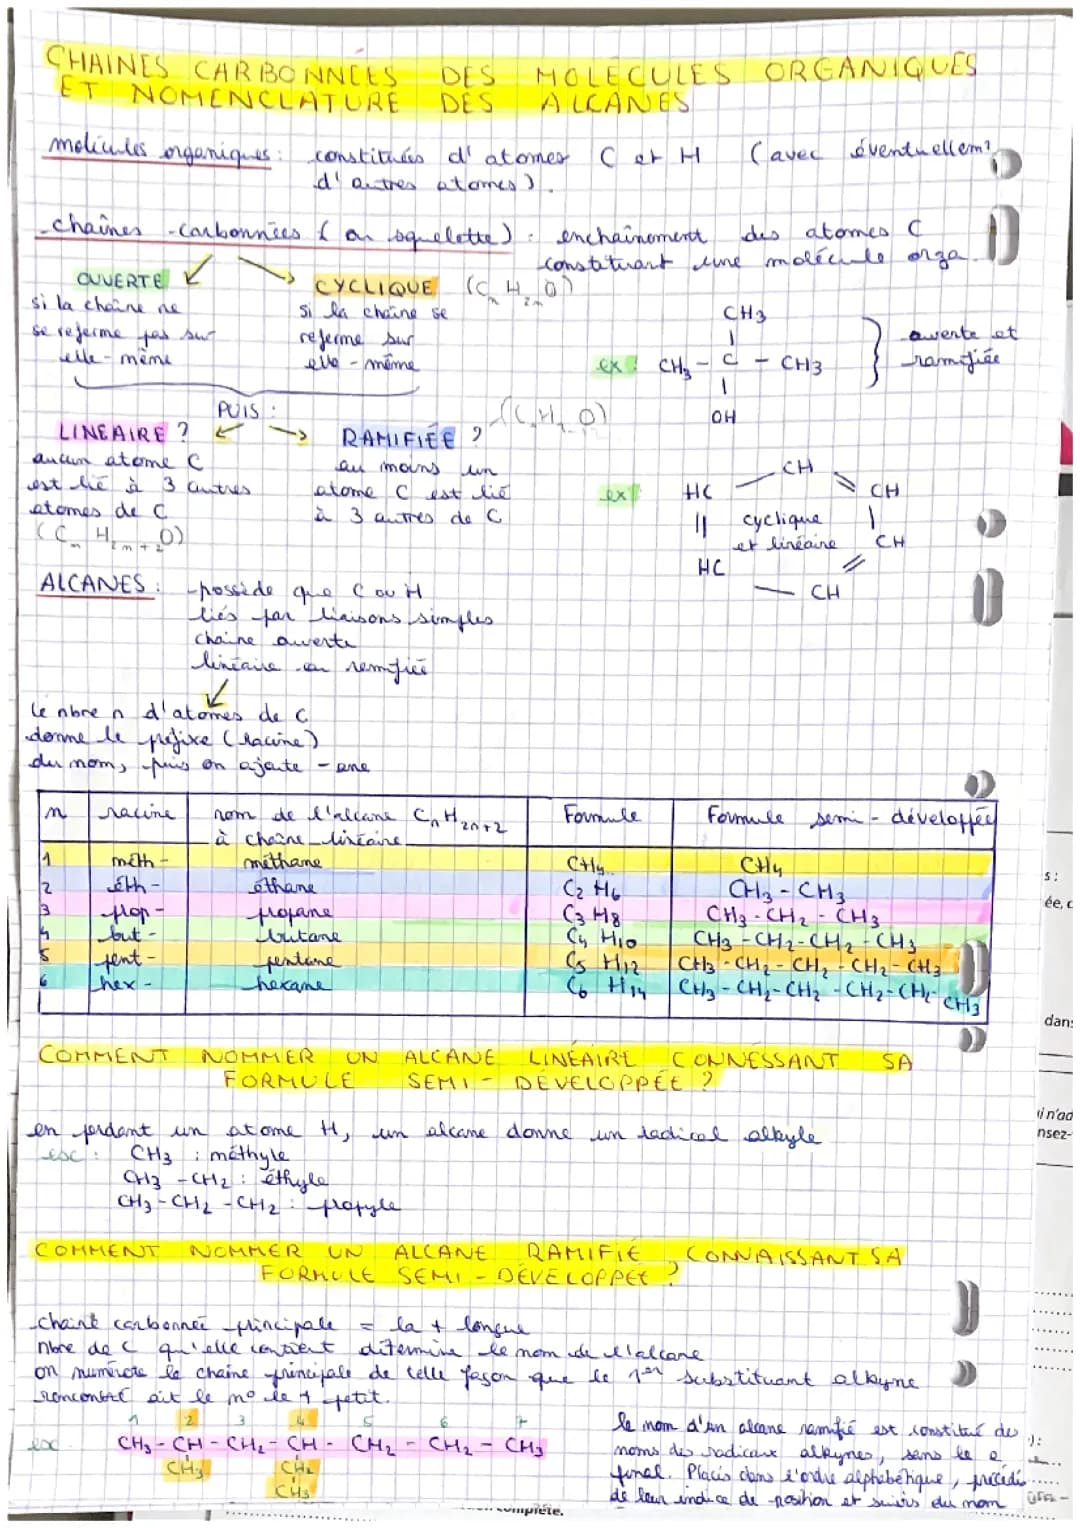 CHAINES CARBONNÉES DES MOLÉCULES ORGANIQUES
ET NOMENCLATURE DES ALCANES
molécules organiques : constituées d'atomes C et H (avec éventuellemt
d'autres atomes).
chaînes carbonnées (ou squelette) : enchaînement des atomes C
constituant une molécule orga.
OUVERTE
si la chaîne ne
se referme pas sur
elle-même
CYCLIQUE (CnH2nO)
si la chaîne se
referme sur
elle-même
CH3
ex : CH3 - C - CH3
OH
ouverte et
ramifiée
PUIS :
LINÉAIRE ?
aucun atome C
est lié à 3 autres
atomes de C
(CnH2n+2O)
RAMIFIÉE ?
au moins un
atome C est lié
à 3 autres de C
ex :
CH
HC CH
cyclique
et linéaire
CH
HC
CH
ALCANES : -possède que C ou H
liés par liaisons simples
chaîne ouverte
linéaire ou remifiée
le nbre n d'atomes de C
donne le préfixe (racine)
du nom, puis on ajoute -ane
n racine nom de l'alcane CnH2n+2 à chaîne linéaire Formule Formule semi-développée
1 méth- méthane CH4 CH4
2 éth- éthane C2H6 CH3-CH3
3 prop- propane C3H8 CH3-CH2-CH3
4 but- butane C4H10 CH3-CH2-CH2-CH3
5 pent- pentane C5H12 CH3-CH2-CH2-CH2-CH3
6 hex- hexane C6H14 CH3-CH2-CH2-CH2-CH2-CH3
COMMENT NOMMER UN ALCANE LINÉAIRE CONNESSANT SA
FORMULE SEMI-DÉVELOPPÉE ?
en perdant un atome H, un alcane donne un radical alkyle
ex : CH3 : méthyle
CH3-CH2 : éthyle
CH3-CH2-CH2 : propyle
COMMENT NOMMER UN ALCANE RAMIFIÉ CONNAISSANT SA
FORMULE SEMI-DÉVELOPPÉE ?
chaîne carbonnée principale = la + longue
nbre de C qu'elle contient détermine le nom de l'alcane
on numérote la chaîne principale de telle façon que le 1er substituant alkyne
rencontré ait le n° le + petit.
1 2 3 4 5 6 7
ex CH3-CH-CH2-CH-CH2-CH2-CH3
CH3 CH2
CH3
le nom d'un alcane ramifié est constitué des
noms des radicaux alkynes, sans le e
final. Placés dans l'ordre alphabétique, précédé
de leur indice de position et suivis du nom
s :
ée, c
dans
i n'ad
nsez-
complète.